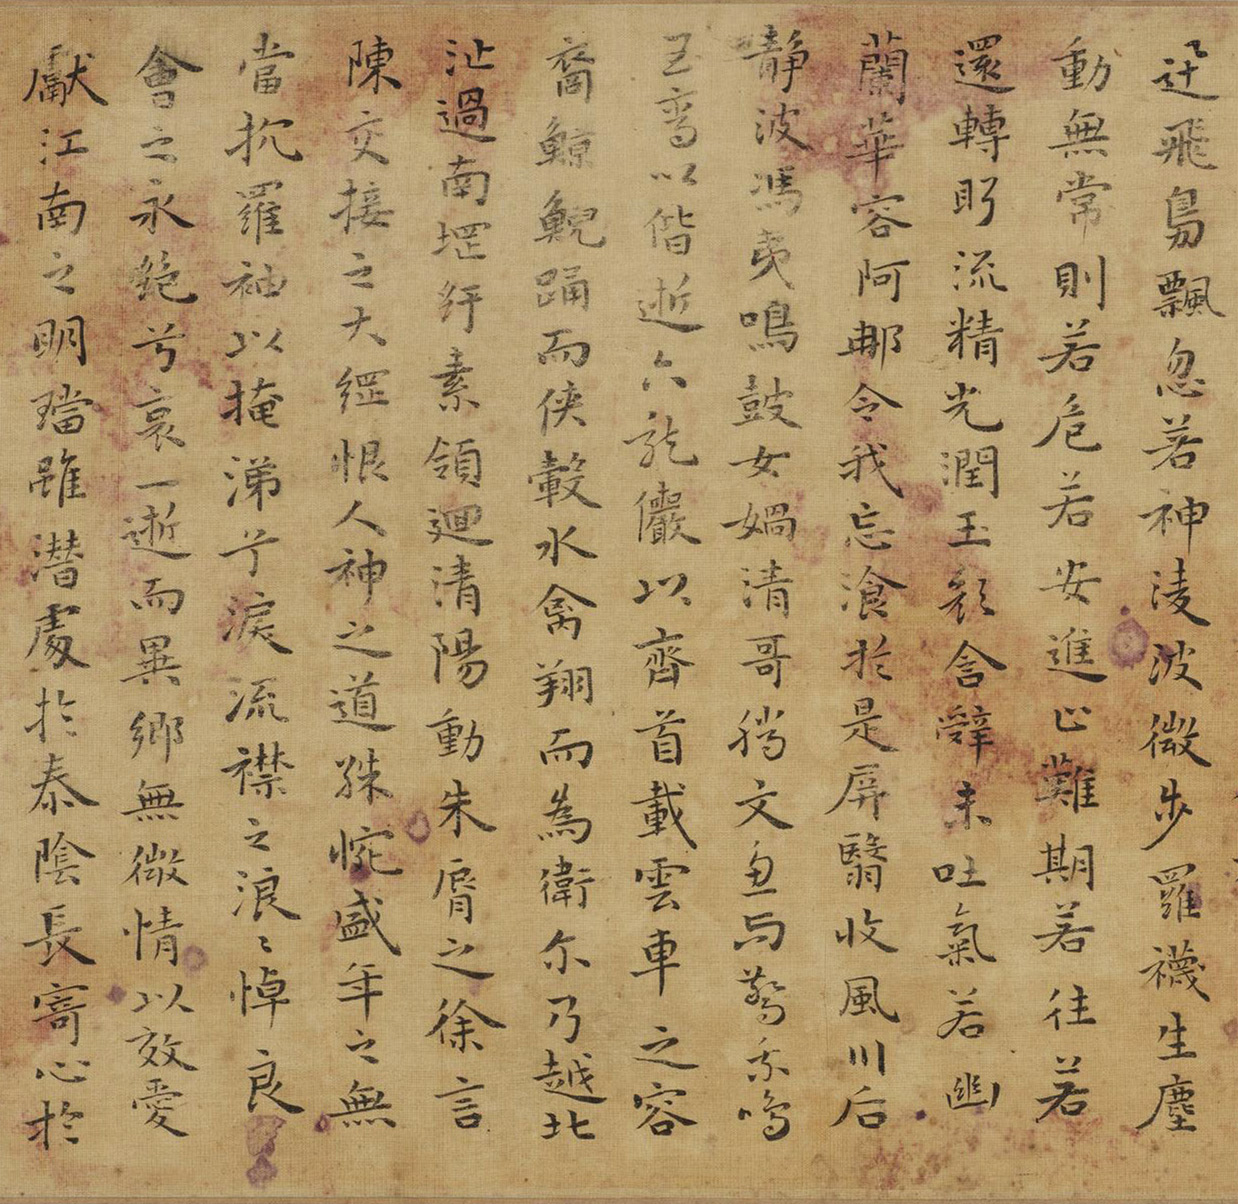 迅飛鳧飄忽若神淩波微步羅襪生塵
動無常則若危若安進止難期若往若
還轉眄流精光潤玉顏含辭未吐氣若幽
蘭華容阿那令我忘飡於是屏翳收風川后
靜波馮夷鳴鼓女媧清哥騰文魚与警乘鳴
玉鸞以偕逝六龍儼以齊首載雲車之容
裔鯨鯢踊而俠轂水禽翔而為衛尓乃越北
沚過南堽紆素領迴清陽動朱脣之徐言
陳交接之大綱恨人神之道殊惋盛年之無
當抗羅袖以掩涕兮淚流襟之浪〻悼良
會之永絕兮哀一逝而異鄉無微情以效愛
獻江南之明璫雖潛處於泰陰長寄心於